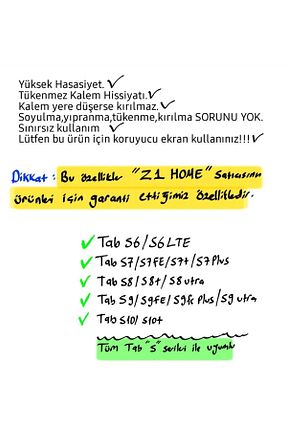 Yüksek Hasasiyet.
Tükenmez Kalem Hissiyatı.
Kalem yere düşerse kırılmaz.
Soyulma,yıpranma,tükenme,kırılma SORUNU YOK.
Sınırsız kullanım
Lütfen bu ürün için koruyucu ekran kullanınız!!!
Dikkat: Bu özellikler "Z1 HOME" Satıcısının
ürünleri için garanti ettiğimiz özelliklerdir.
Tab S6/S6 LTE
Tab S7/S7FE/S7+/S7 Plus
Tab S8/S8+/S8 utra
Tab S9/S9FE/S9fe Plus/S9 utra
Tab S10/S10+
Tüm Tab "S" serileri ile uyumlu